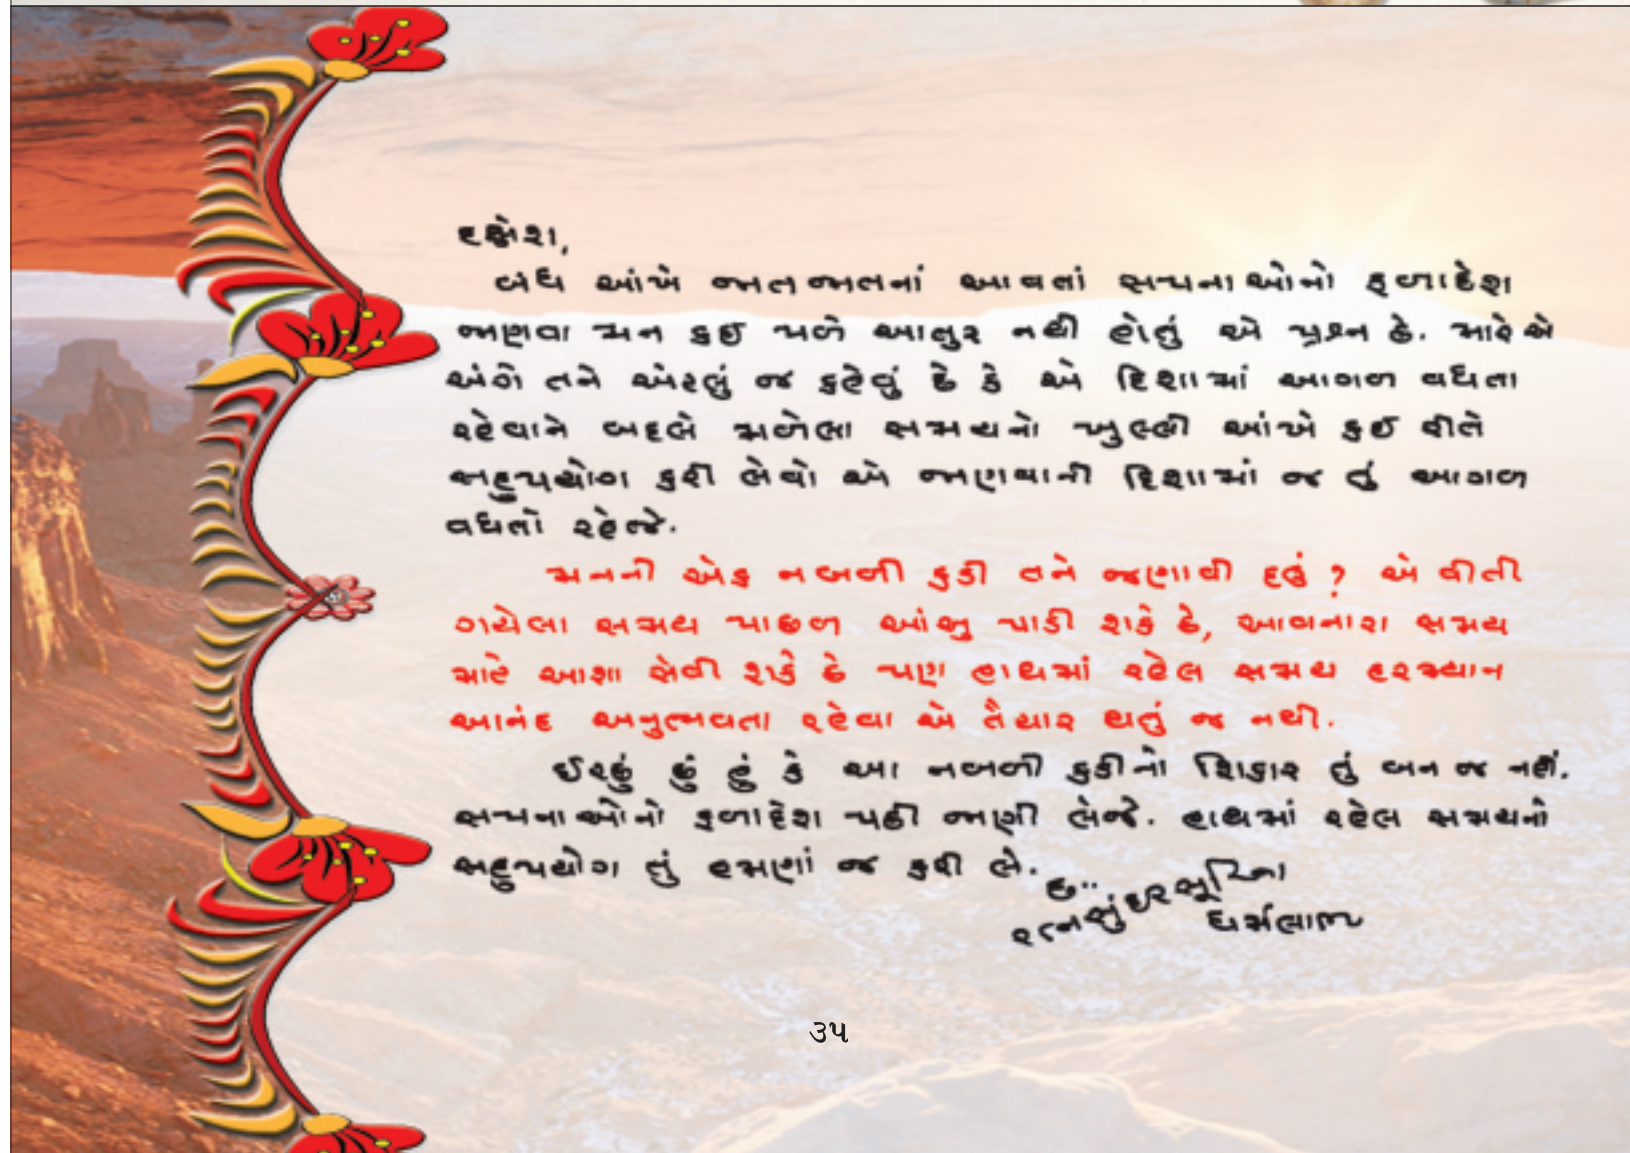 દક્ષેશ,
બંધ આંખે જાતજાતનાં આવતાં સપનાઓનો ફળાદેશ
જાણવા મન કઈ પળે આતુર નથી હોતું એ પ્રશ્ન છે. મારે એ
અંગે તને એટલું જ કહેવું છે કે એ દિશામાં આગળ વધતા
રહેવાને બદલે મળેલા સમયનો ખુલ્લી આંખે કઈ રીતે
સદુપયોગ કરી લેવો એ જાણવાની દિશામાં જ તું આગળ
વધતો રહેજે.
મનની એક નબળી કડી તને જણાવી દઉં ? એ વીતી
ગયેલા સમય પાછળ આંસુ પાડી શકે છે, આવનારા સમય
માટે આશા સેવી શકે છે પણ હાથમાં રહેલ સમય દરમ્યાન
આનંદ અનુભવતા રહેવા એ તૈયાર થતું જ નથી.
ઈચ્છું છું હું કે આ નબળી કડીનો શિકાર તું બન જ નહીં.
સપનાઓનો ફળાદેશ પછી જાણી લેજે. હાથમાં રહેલ સમયનો
સદુપયોગ તું હમણાં જ કરી લે.
દ..
રત્નસુંદરસૂરિના
ધર્મલાભ
૩૫